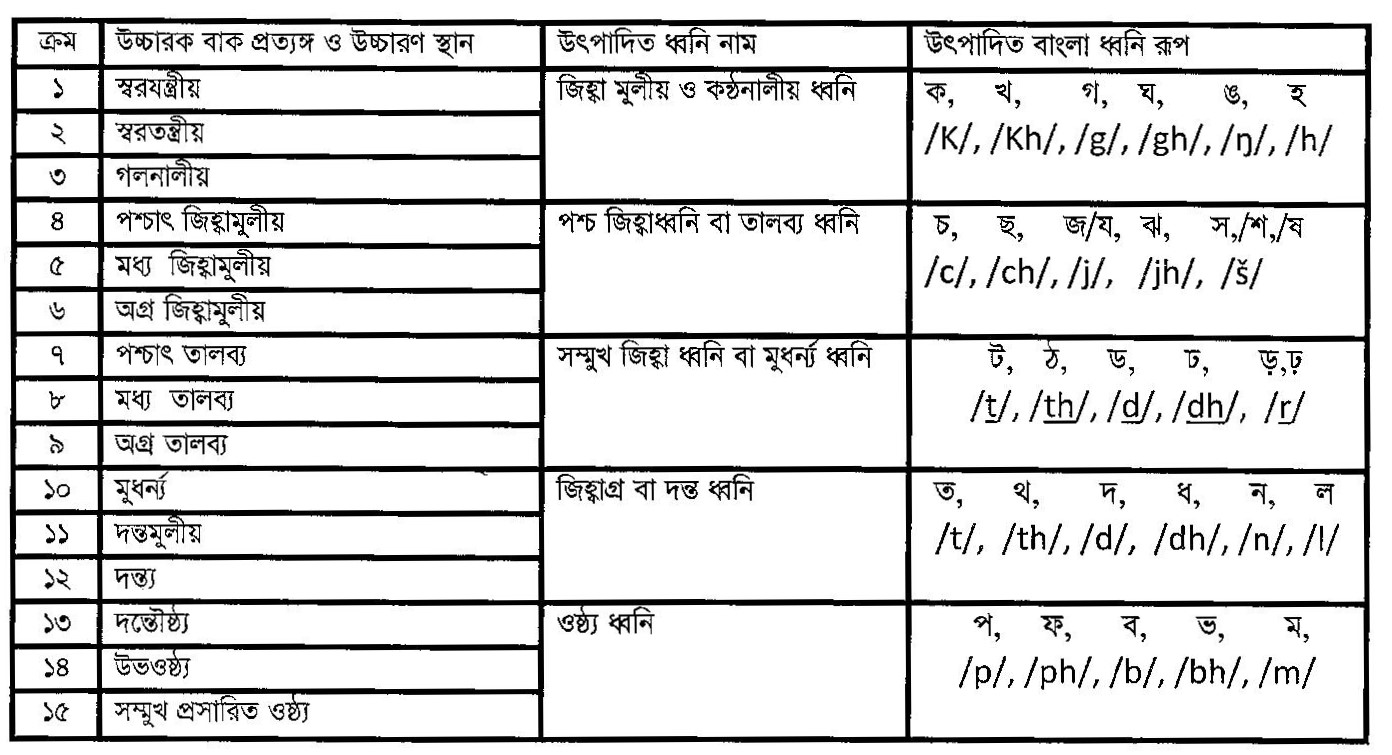 ক্রম উচ্চারক বাক প্রত্যঙ্গ ও উচ্চারণ স্থান উৎপাদিত ধ্বনি নাম উৎপাদিত বাংলা ধ্বনি রূপ
১ স্বরযন্ত্রীয় জিহ্বা মূলীয় ও কন্ঠনালীয় ধ্বনি ক, খ, গ, ঘ, ঙ, হ
২ স্বরতন্ত্রীয় /K/, /Kh/, /g/, /gh/, /ŋ/, /h/
৩ গলনালীয়
৪ পশ্চাৎ জিহ্বামূলীয় পশ্চ জিহাধ্বনি বা তালব্য ধ্বনি চ, ছ, জ/য, ঝ, স,/শ,/ষ
৫ মধ্য জিহ্বামূলীয় /c/, /ch/, /j/, /jh/, /š/
৬ অগ্র জিহ্বামূলীয়
৭ পশ্চাৎ তালব্য সম্মুখ জিহ্বা ধ্বনি বা মুধর্ন্য ধ্বনি ট, ঠ, ড, ঢ, ড়,ঢ়
৮ মধ্য তালব্য /t/, /th/, /d/, /dh/, /r/
৯ অগ্র তালব্য
১০ মুধর্ন্য জিহ্বাগ্র বা দন্ত ধ্বনি ত, থ, দ, ধ, ন, ল
১১ দন্তমূলীয় /t/, /th/, /d/, /dh/, /n/, /l/
১২ দন্ত্য
১৩ দন্তৌষ্ঠ্য ওষ্ঠ্য ধ্বনি প, ফ, ব, ভ, ম,
১৪ উভওষ্ঠ্য /p/, /ph/, /b/, /bh/, /m/
১৫ সম্মুখ প্রসারিত ওষ্ঠ্য